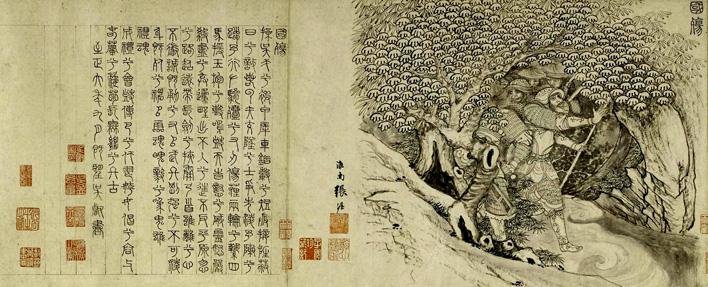 國殤
淮南張渥
國殤
操吳戈兮被犀甲車錯轂兮短兵接旌蔽
日兮敵若雲矢交墜兮士爭先凌余陣兮
躐余行左驂殪兮右刃傷霾兩輪兮縶四
馬援玉枹兮擊鳴鼓天時懟兮威靈怒嚴
殺盡兮棄原野出不入兮往不反平原忽
兮路超遠帶長劍兮挾秦弓首雖離兮心
不懲誠既勇兮又以武終剛強兮不可凌
身既死兮神以靈魂魄毅兮為鬼雄
禮魂
成禮兮會鼓傳芭兮代舞姱女倡兮容與
春蘭兮秋菊長無絕兮終古
至正六年九月既望吳叡書